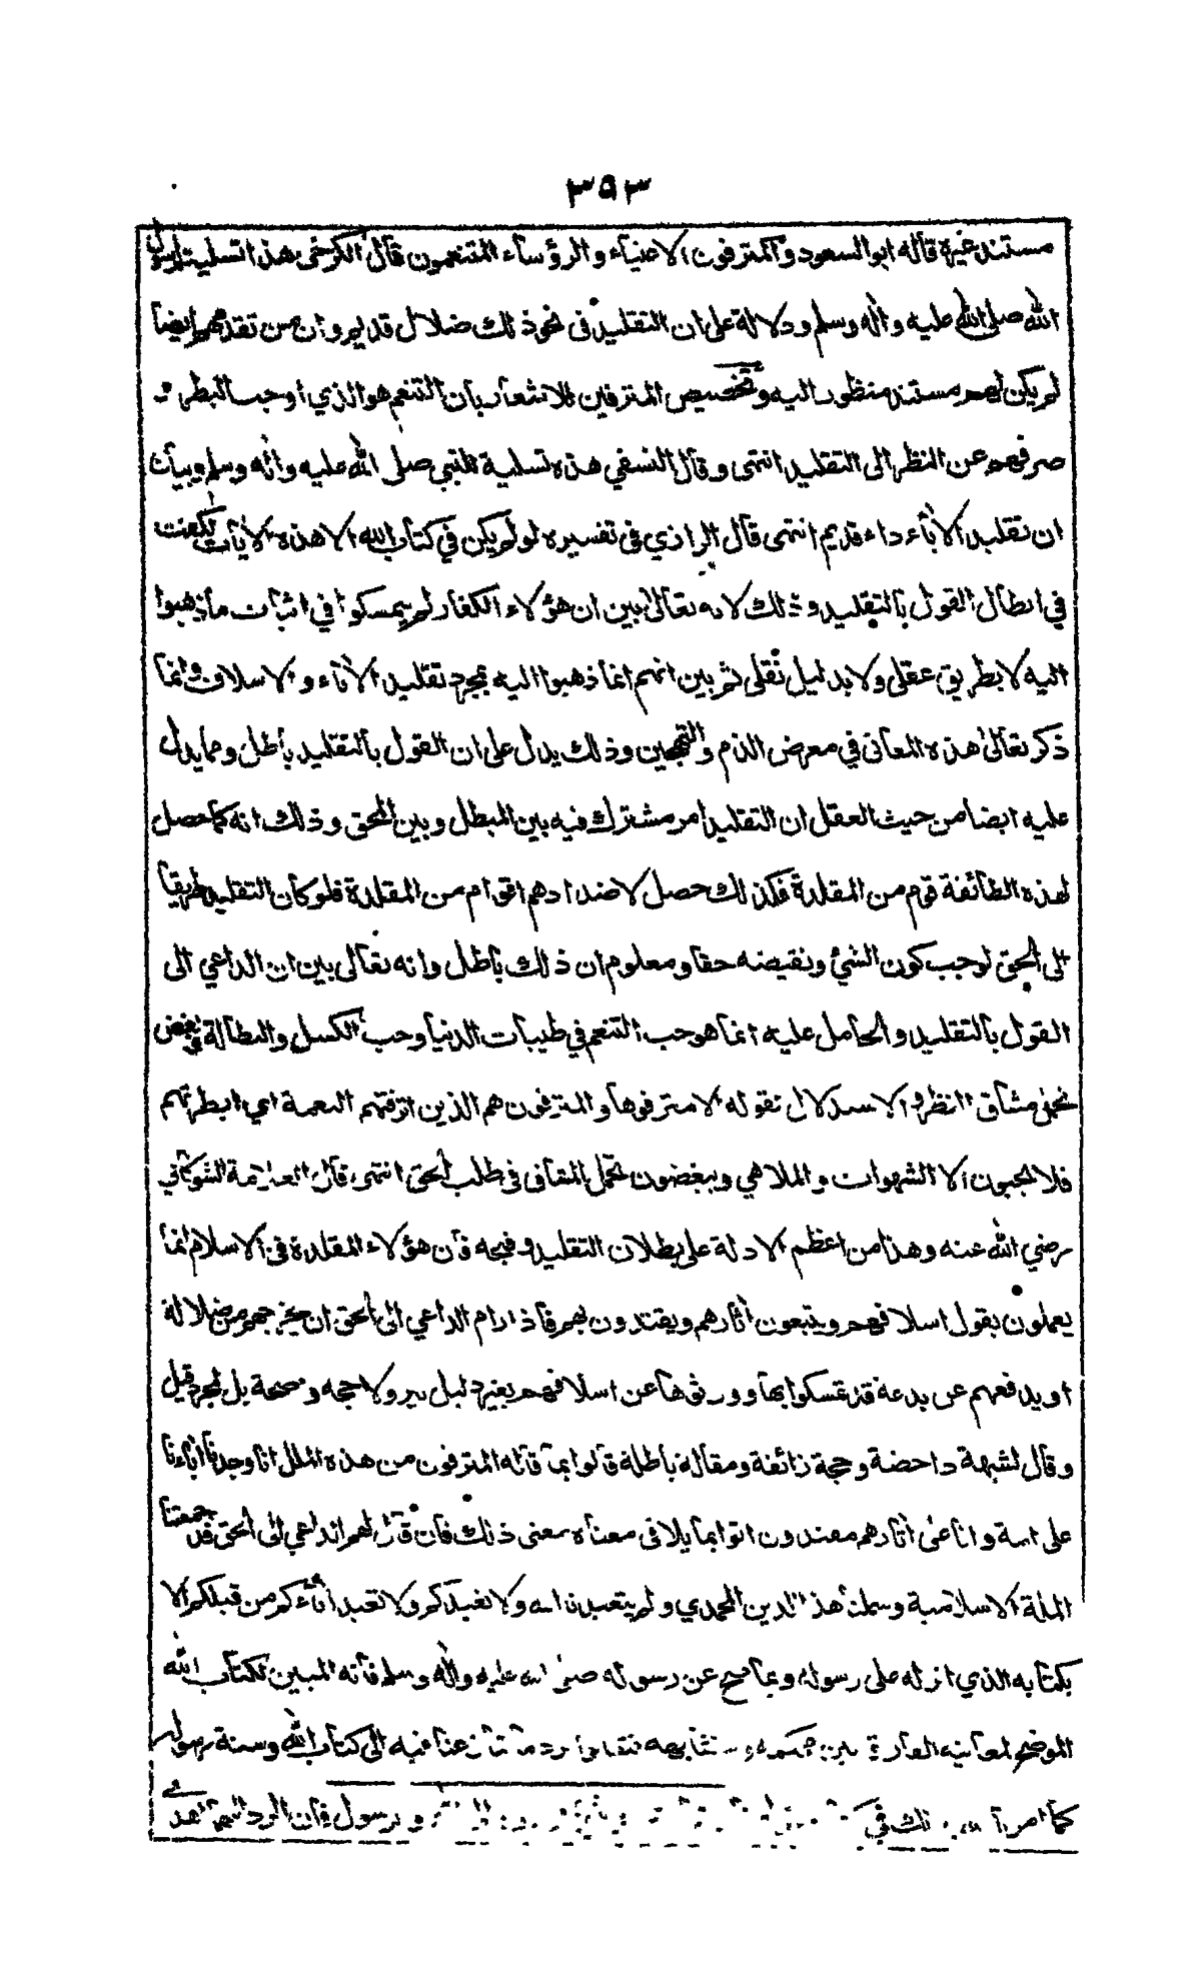 ٣٥٣
مستند غيره قاله ابو السعود والمترفون الاغنياء والرؤساء المتنعمون قال الكرخي هذا تسلية لرسول
الله صلى الله عليه واله وسلم ودلالة على ان التقليد في نحو ذلك ضلال قديم وان من تقدمهم ايضا
لم يكن لهم مستند منظور اليه وتخصيص المترفين للاشعار بان التنعم هو الذي اوجب البطر و
صرفهم عن النظر الى التقليد انتهى وقال النسفي هذه تسلية للنبي صلى الله عليه واله وسلم وبيان
ان تقليد الاباء داء قديم انتهى قال الرازي في تفسيره لو لم يكن في كتاب الله الا هذه الايات لكفت
في ابطال القول بالتقليد وذلك لانه تعالى بين ان هؤلاء الكفار لم يتمسكوا في اثبات ما ذهبوا
اليه لا بطريق عقلي ولا بدليل نقلي ثم بين انهم انما ذهبوا اليه بمجرد تقليد الاباء والاسلاف وانما
ذكر تعالى هذه المعاني في معرض الذم والتهجين وذلك يدل على ان القول بالتقليد باطل ومما يدل
عليه ايضا من حيث العقل ان التقليد امر مشترك فيه بين المبطل وبين المحق وذلك انه كما حصل
لهذه الطائفة قوم من المقلدة فكذلك حصل لاضدادهم اقوام من المقلدة فلو كان التقليد طريقا
الى الحق لوجب كون الشئ ونقيضه حقا ومعلوم ان ذلك باطل وانه تعالى بين ان الداعي الى
القول بالتقليد والحامل عليه انما هو حب التنعم في طيبات الدنيا وحب الكسل والبطالة وبغض
تحمل مشاق النظر والاستدلال لقوله الا مترفوها والمترفون هم الذين اترفتهم النعمة اي ابطرتهم
فلا يحبون الا الشهوات والملاهي ويبغضون تحمل المشاق في طلب الحق انتهى قال العلامة الشوكاني
رضي الله عنه وهذا من اعظم الادلة على بطلان التقليد وقبحه فان هؤلاء المقلدة في الاسلام انما
يعملون بقول اسلافهم ويتبعون اثارهم ويقتدون بهم فاذا رام الداعي الى الحق ان يخرجهم من ضلالة
او يدفعهم عن بدعة قد تمسكوا بها وورثوها عن اسلافهم بغير دليل نير ولا حجة واضحة بل لمجرد قيل
وقال لشبهة داحضة وحجة زائفة ومقالة باطلة قالوا بما قاله المترفون من هذه الملل انا وجدنا اباءنا
على امة وانا على اثارهم مقتدون او بما يلاقي معناه معنى ذلك فان قال لهم الداعي الى الحق قد جمعتنا
الملة الاسلامية وشملنا هذا الدين المحمدي ولم يتعبدنا الله ولا تعبدكم ولا تعبد اباءكم من قبلكم الا
بكتابه الذي انزله على رسوله وبما صح عن رسوله صلى الله عليه واله وسلم فانه المبين لكتاب الله
الموضح لمعانيه الفارق بين محكمه ومتشابهه فتعالوا نرد ما تنازعنا فيه الى كتاب الله وسنة رسوله
كما امرنا الله بذلك في ورسول فان الرد اليهما اهدى